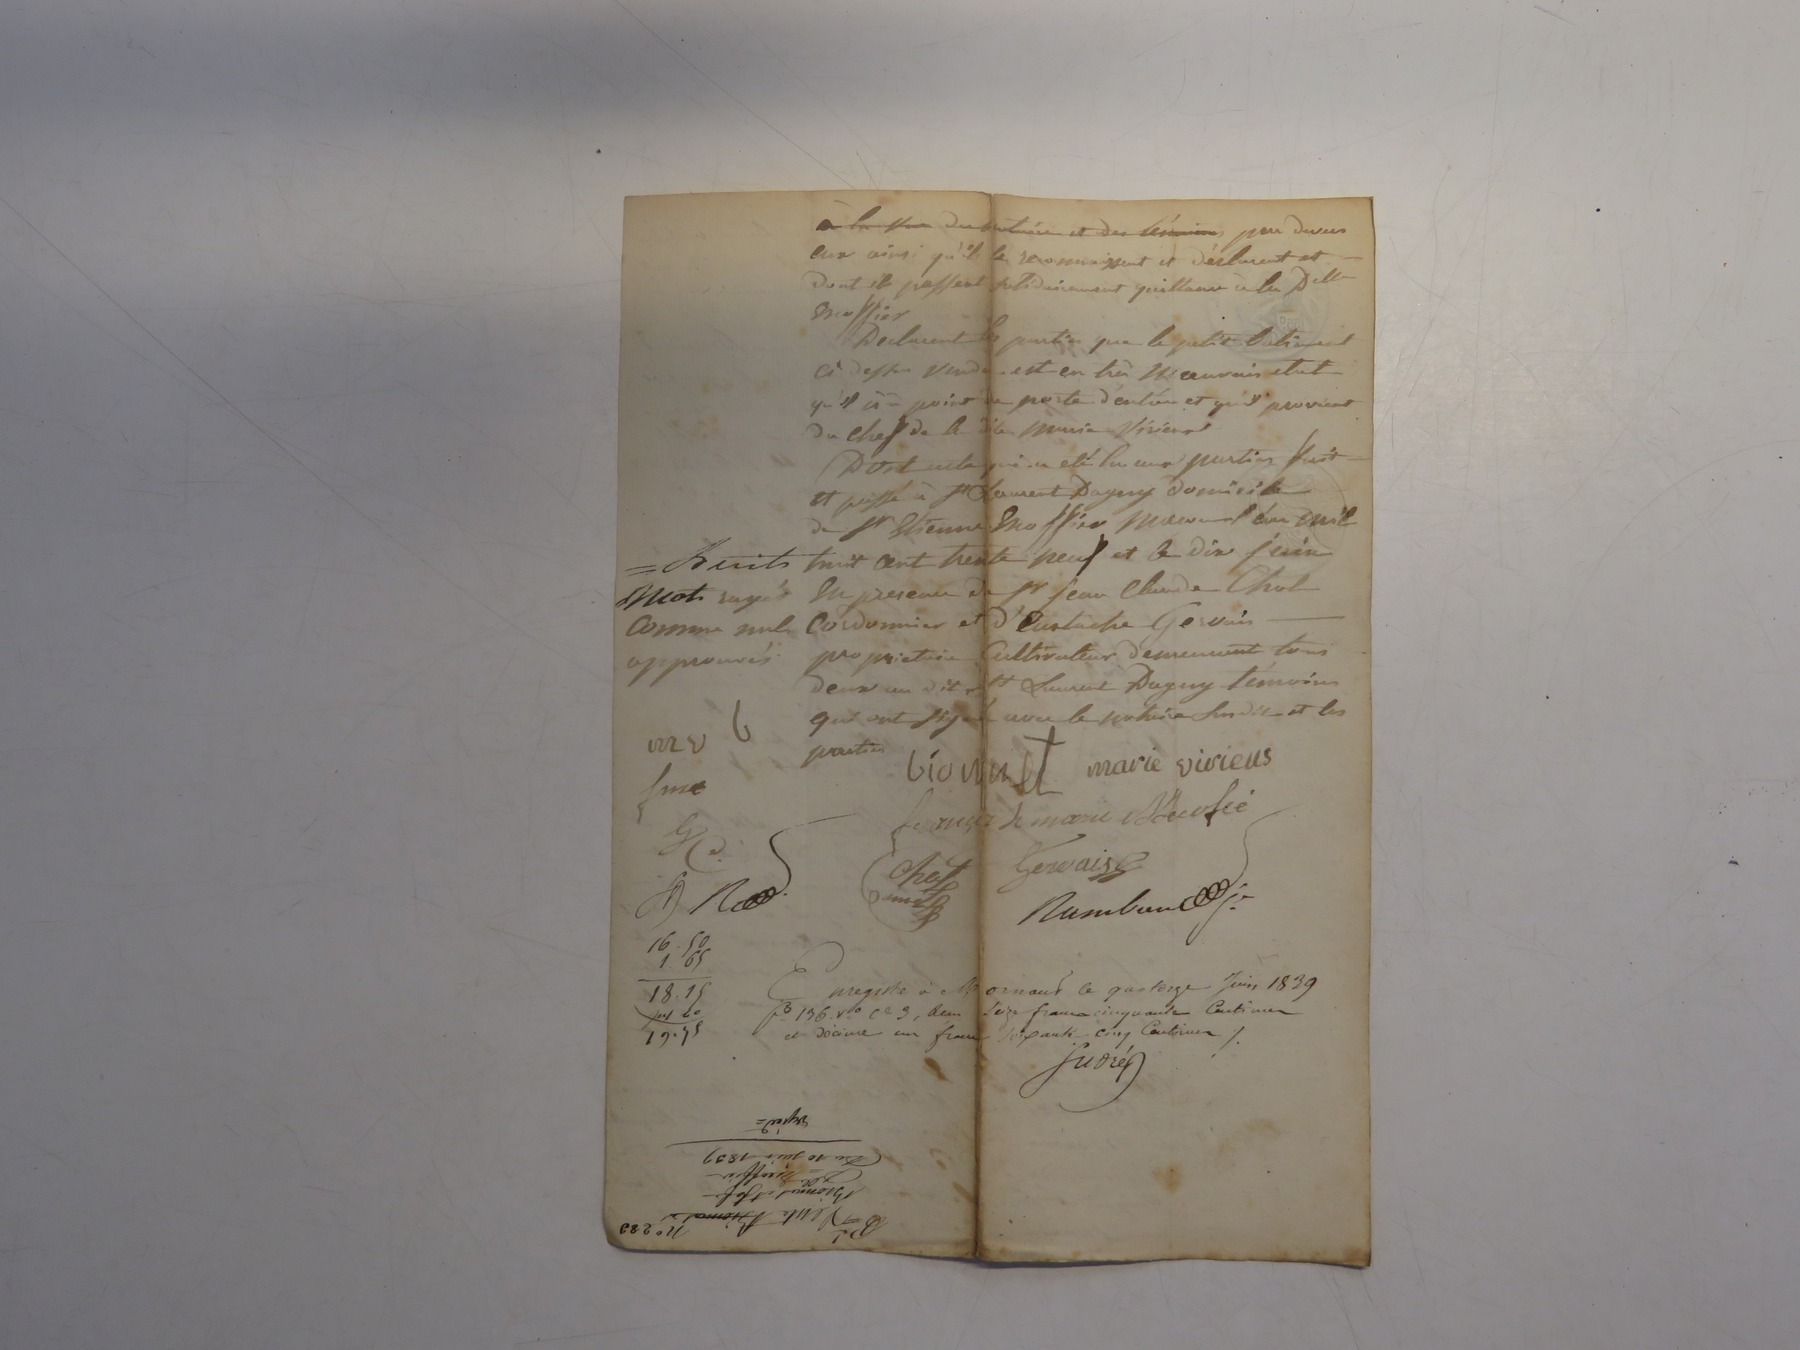 à la vue du notaire et des témoins par devers
eux ainsi qu'il le reconnaissent et déclarent et
dont ils passent solidairement quittance à la Dlle
Declarent les parties que le petit batiment
ci dessus vendu est en très mauvais etat
qu'il n'a point de porte d'entrée et qu'il provient
du chef de la dite Marie Viriens
Dont acte qui a été lu aux parties fait
et passé à St Laurent Dagny domicile
de Sr Etienne maçon l'an mil
huit cent trente neuf et le dix juin
En presence de Sr Jean Claude Chol
Cordonnier et d'Eustache Gervais
proprietaire Cultivateur demeurant tous
deux au dit St Laurent Dagny témoins
qui ont signé avec le notaire susdit et les
parties
= huits
Mots rayés
Comme nuls
approuvés
mv b
marie viriens
Chol
Gervais
16.50
1.65
18.15
19.75
Enregistré à Mornant le quatorze Juin 1839
fo 136 vo ce 3, Reçu seize francs cinquante Centimes
et décime un franc soixante cinq Centimes
No 233
Vente
Du 10 juin 1839